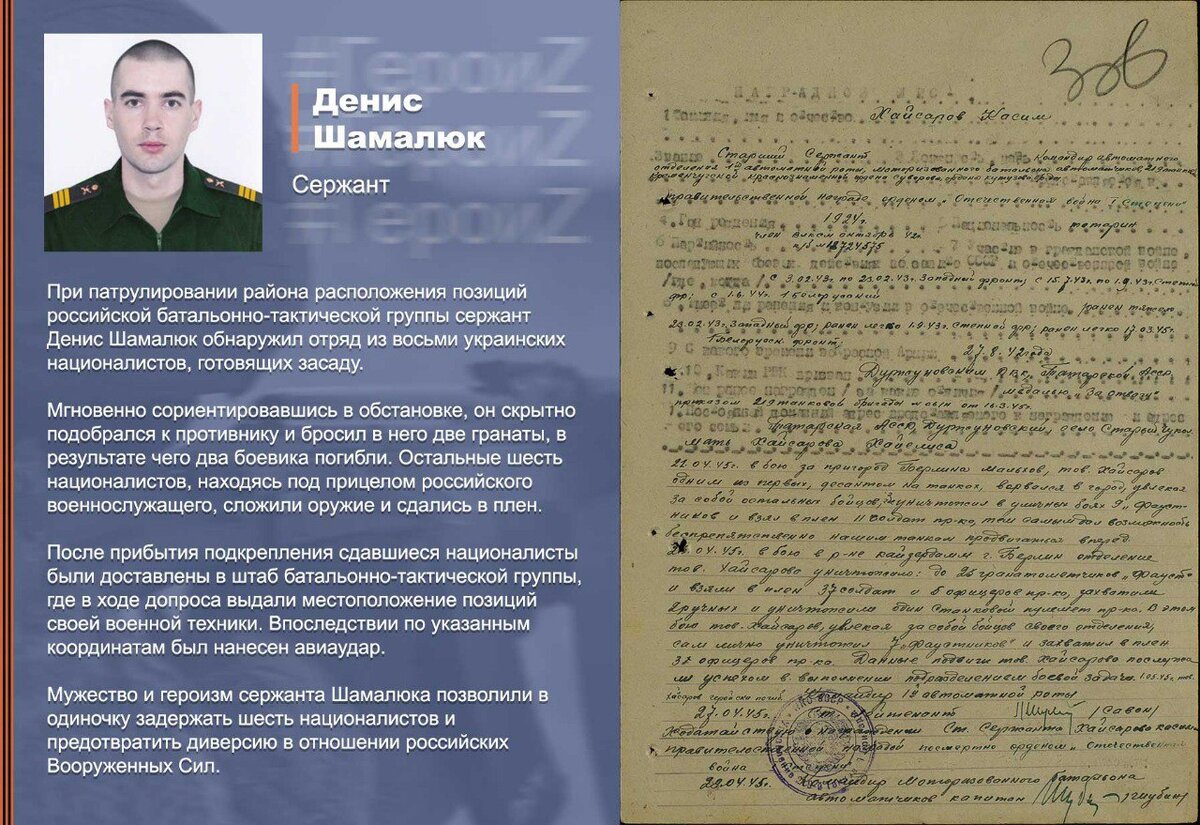 #ГероиZ
Денис
Шамалюк
Сержант
При патрулировании района расположения позиций
российской батальонно-тактической группы сержант
Денис Шамалюк обнаружил отряд из восьми украинских
националистов, готовящих засаду.
Мгновенно сориентировавшись в обстановке, он скрытно
подобрался к противнику и бросил в него две гранаты, в
результате чего два боевика погибли. Остальные шесть
националистов, находясь под прицелом российского
военнослужащего, сложили оружие и сдались в плен.
После прибытия подкрепления сдавшиеся националисты
были доставлены в штаб батальонно-тактической группы,
где в ходе допроса выдали местоположение позиций
своей военной техники. Впоследствии по указанным
координатам был нанесен авиаудар.
Мужество и героизм сержанта Шамалюка позволили в
одиночку задержать шесть националистов и
предотвратить диверсию в отношении российских
Вооруженных Сил.
Хайсаров Касим
Старший Сержант Командир автоматного
отделения автоматной роты, моторизованного батальона автоматчиков, 219 танк.
правительственной награде орденом "Отечественной война I степени"
4. Год рождения 1924г. Национальность татарин
член ВЛКСМ октябрь 42г.
6 Партийность п/б № 18724575 7 Участие в гражданской войне
последующих боевых действиях по защите СССР и отечественной войне
/где, когда/ С 3.02.43г. по 23.02.43г. Западный фронт, с 15.7.43г. по 1.9.43г. Степной
фр; с 1.6.44г. 1 Белорусский
ранен тяжело
23.02.43г. Западный фр; ранен легко 1.9.43г. Степной фр; ранен легко 17.03.45г.
1 Белорусск. фронт;
9 С какого времени в Красной Армии 27.8.42 года
10. Каким РВК призван РВК, Татарской АССР
медалью "За отвагу"
приказом 219 танковой бригады от 16.3.45г.
Татарская АССР село Старый
мать Хайсарова
22.04.45г. в бою за пригород Берлина Мальхов, тов. Хайсаров
одним из первых, десантом на танках, ворвался в город, увлекая
за собой остальных бойцов, уничтожил в уличных боях 9 "Фауст-
ников и взял в плен 11 солдат пр-ка, тем самым дал возможность
беспрепятственно нашим танкам продвигаться вперед
04.45г. в бою в р-не г. Берлин отделение
тов. Хайсарова уничтожило: до 25 гранатометчиков "Фауст"
и взяли в плен 37 солдат и 5 офицеров пр-ка, захватили
2 ручных и уничтожили один станковый пулемет пр-ка. В этом
бою тов. Хайсаров, увлекая за собой бойцов своего отделения,
сам лично уничтожил 7 "Фаустников" и захватил в плен
офицеров пр-ка. Данные подвиги тов. Хайсарова послужи-
ли успехом в выполнении подразделением боевой задачи. 1.05.45г. тов.
Хайсаров геройски погиб. Командир 1й автоматной роты
27.04.45г. Ст. Лейтенант /Савон/
Ходатайствую о награждении Ст. Сержанта Хайсарова
правительственной наградой посмертно орденом "Отечественная
война степени"
29.04.45г. Командир Моторизованного батальона
автоматчиков капитан